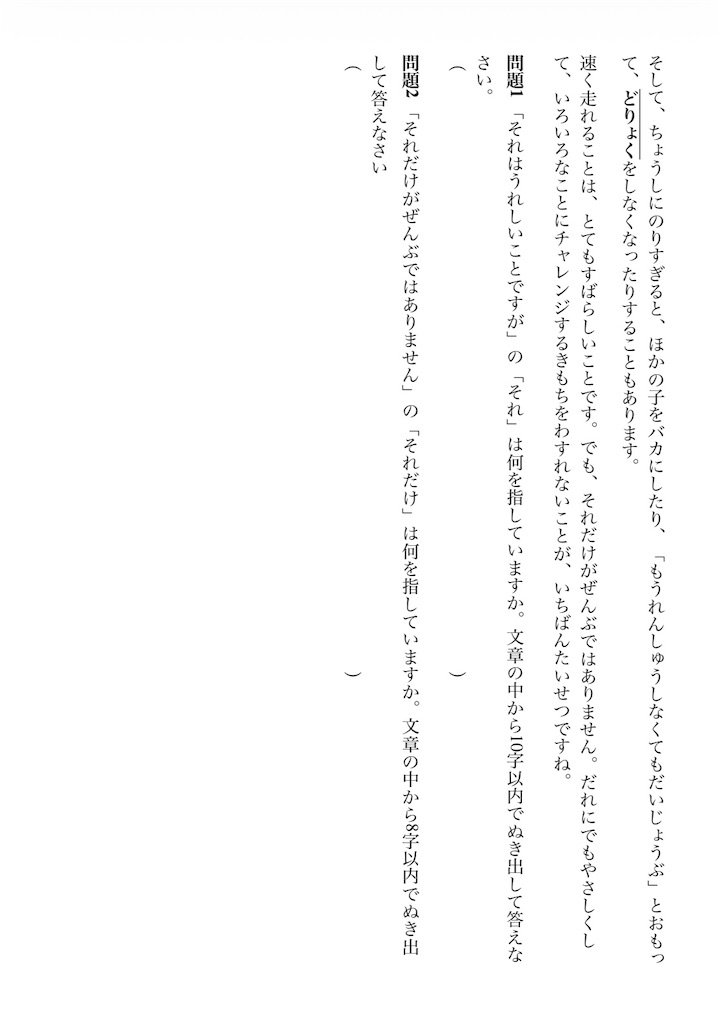 そして、ちょうしにのりすぎると、ほかの子をバカにしたり、「もうれんしゅうしなくてもだいじょうぶ」とおもっ
て、どりょくをしなくなったりすることもあります。
速く走れることは、とてもすばらしいことです。でも、それだけがぜんぶではありません。だれにでもやさしくし
て、いろいろなことにチャレンジするきもちをわすれないことが、いちばんたいせつですね。
問題1 「それはうれしいことですが」の「それ」は何を指していますか。文章の中から10字以内でぬき出して答えな
さい。
（　　　）
問題2 「それだけがぜんぶではありません」の「それだけ」は何を指していますか。文章の中から8字以内でぬき出
して答えなさい
（　　　）